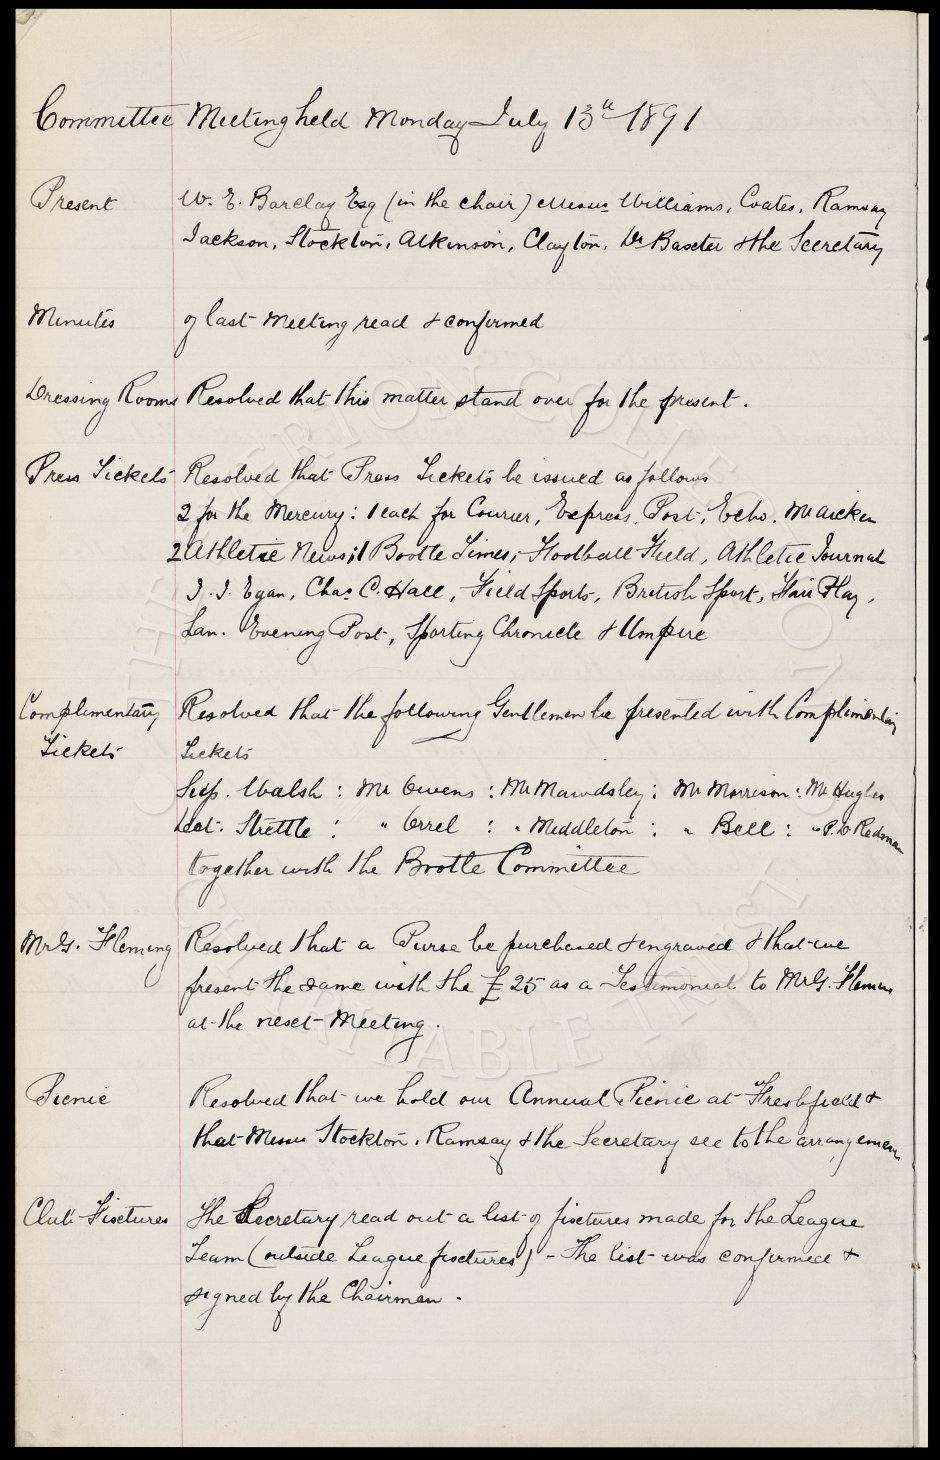 Committee Meeting held Monday July 13th 1891
Present W. E. Barclay Esq (in the chair) Messrs Williams, Coates, Ramsay
Jackson, Stockton, Atkinson, Clayton, Dr Baxter & the Secretary
Minutes of last Meeting read & confirmed
Dressing Rooms Resolved that this matter stand over for the present.
Press Tickets Resolved that Press Tickets be issued as follows
2 for the Mercury: 1 each for Courier, Express, Post, Echo,
2 Athletic News; 1 Bootle Times, Football Field, Athletic Journal
J. J. Egan, Chas C. Hall, Field Sports, British Sport, Fair Play,
Lan. Evening Post, Sporting Chronicle & Umpire
Complimentary Resolved that the following Gentlemen be presented with Complimentary
Tickets Tickets
Sup. Walsh : Mr Owens : Mr Mawdsley : Mr Morrison : Mr Hughes
Det. Strettle : " Orrel : " Middleton : " Bell : " P. D Redman
together with the Bootle Committee
Mr G. Fleming Resolved that a Purse be purchased & engraved & that we
present the same with the £25 as a Testimonial to Mr G. Fleming
at the next Meeting.
Picnic Resolved that we hold our Annual Picnic at Freshfield &
that Messrs Stockton, Ramsay & the Secretary see to the arrangements
Club Fixtures The Secretary read out a list of fixtures made for the League
Team (outside League fixtures) - The list was confirmed &
signed by the Chairman.
EVERTON COLLECTION CHARITABLE TRUST